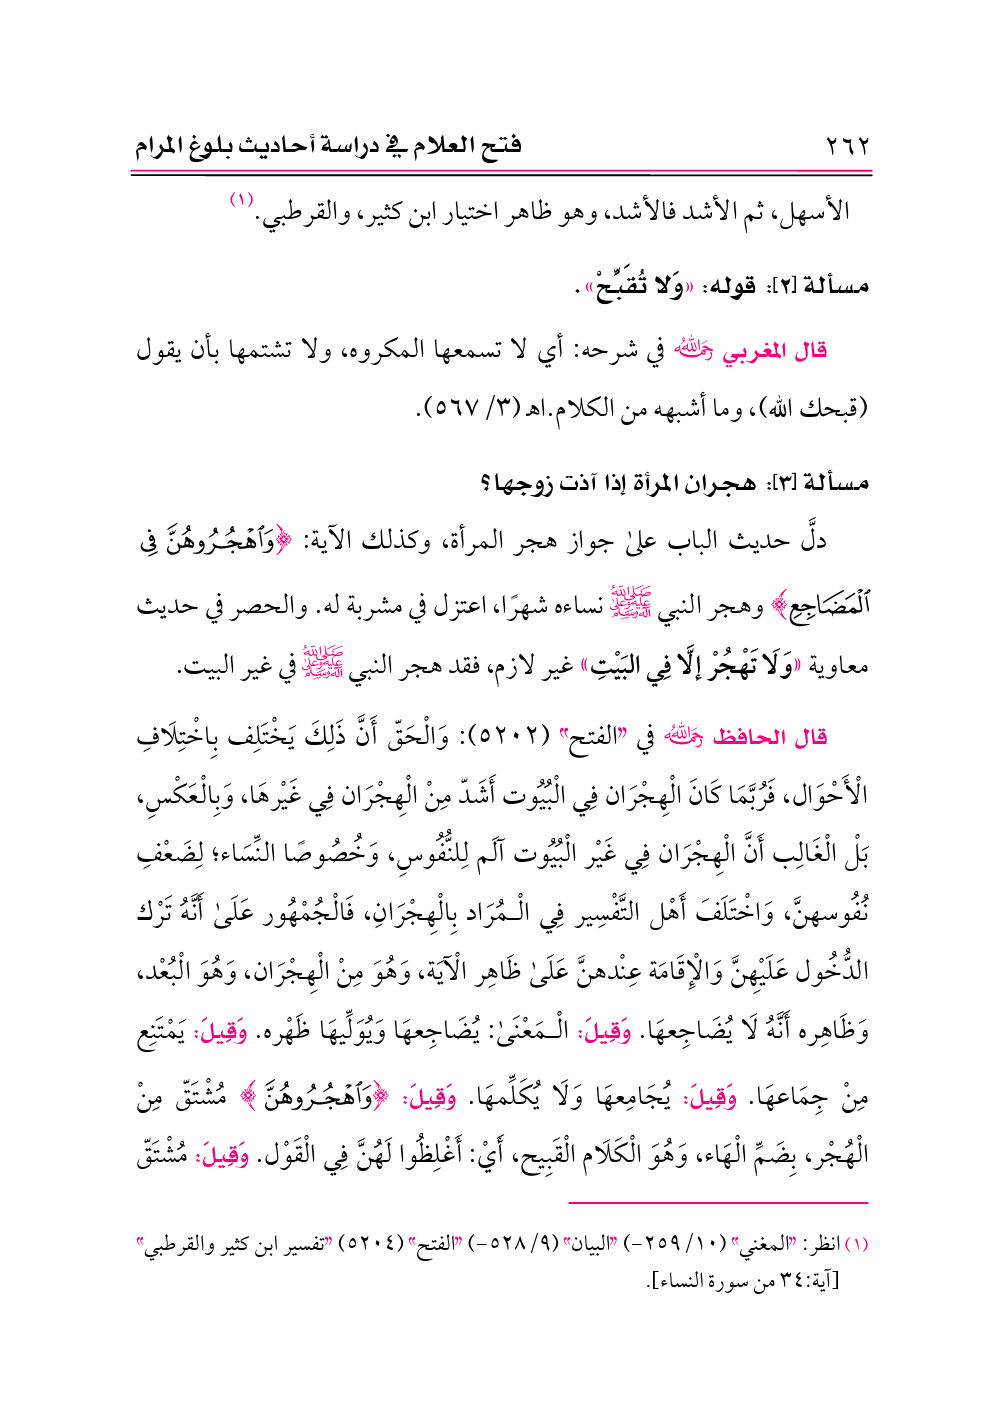 ٢٦٢ فتح العلام في دراسة أحاديث بلوغ المرام
الأسهل، ثم الأشد فالأشد، وهو ظاهر اختيار ابن كثير، والقرطبي.(١)
مسألة [٢]: قوله: «وَلا تُقَبِّحْ».
قال المغربي رحمه الله في شرحه: أي لا تسمعها المكروه، ولا تشتمها بأن يقول
(قبحك الله)، وما أشبهه من الكلام.اهـ (٣/ ٥٦٧).
مسألة [٣]: هجران المرأة إذا آذت زوجها؟
دلَّ حديث الباب علىٰ جواز هجر المرأة، وكذلك الآية: ﴿وَٱهْجُرُوهُنَّ فِى
ٱلْمَضَاجِعِ﴾ وهجر النبي ﷺ نساءه شهرًا، اعتزل في مشربة له. والحصر في حديث
معاوية «وَلَا تَهْجُرْ إلَّا فِي البَيْتِ» غير لازم، فقد هجر النبي ﷺ في غير البيت.
قال الحافظ رحمه الله في "الفتح" (٥٢٠٢): وَالْحَقّ أَنَّ ذَلِكَ يَخْتَلِف بِاخْتِلَافِ
الْأَحْوَال، فَرُبَّمَا كَانَ الْهِجْرَان فِي الْبُيُوت أَشَدّ مِنْ الْهِجْرَان فِي غَيْرهَا، وَبِالْعَكْسِ،
بَلْ الْغَالِب أَنَّ الْهِجْرَان فِي غَيْر الْبُيُوت آلَم لِلنُّفُوسِ، وَخُصُوصًا النِّسَاء؛ لِضَعْفِ
نُفُوسهنَّ، وَاخْتَلَفَ أَهْل التَّفْسِير فِي الْـمُرَاد بِالْهِجْرَانِ، فَالْجُمْهُور عَلَىٰ أَنَّهُ تَرْك
الدُّخُول عَلَيْهِنَّ وَالْإِقَامَة عِنْدهنَّ عَلَىٰ ظَاهِر الْآيَة، وَهُوَ مِنْ الْهِجْرَان، وَهُوَ الْبُعْد،
وَظَاهِره أَنَّهُ لَا يُضَاجِعهَا. وَقِيلَ: الْـمَعْنَىٰ: يُضَاجِعهَا وَيُوَلِّيهَا ظَهْره. وَقِيلَ: يَمْتَنِع
مِنْ جِمَاعهَا. وَقِيلَ: يُجَامِعهَا وَلَا يُكَلِّمهَا. وَقِيلَ: ﴿وَٱهْجُرُوهُنَّ﴾ مُشْتَقّ مِنْ
الْهُجْر، بِضَمِّ الْهَاء، وَهُوَ الْكَلَام الْقَبِيح، أَيْ: أَغْلِظُوا لَهُنَّ فِي الْقَوْل. وَقِيلَ: مُشْتَقّ
(١) انظر: "المغني" (١٠/ ٢٥٩-) "البيان" (٩/ ٥٢٨-) "الفتح" (٥٢٠٤) "تفسير ابن كثير والقرطبي"
[آية:٣٤ من سورة النساء].